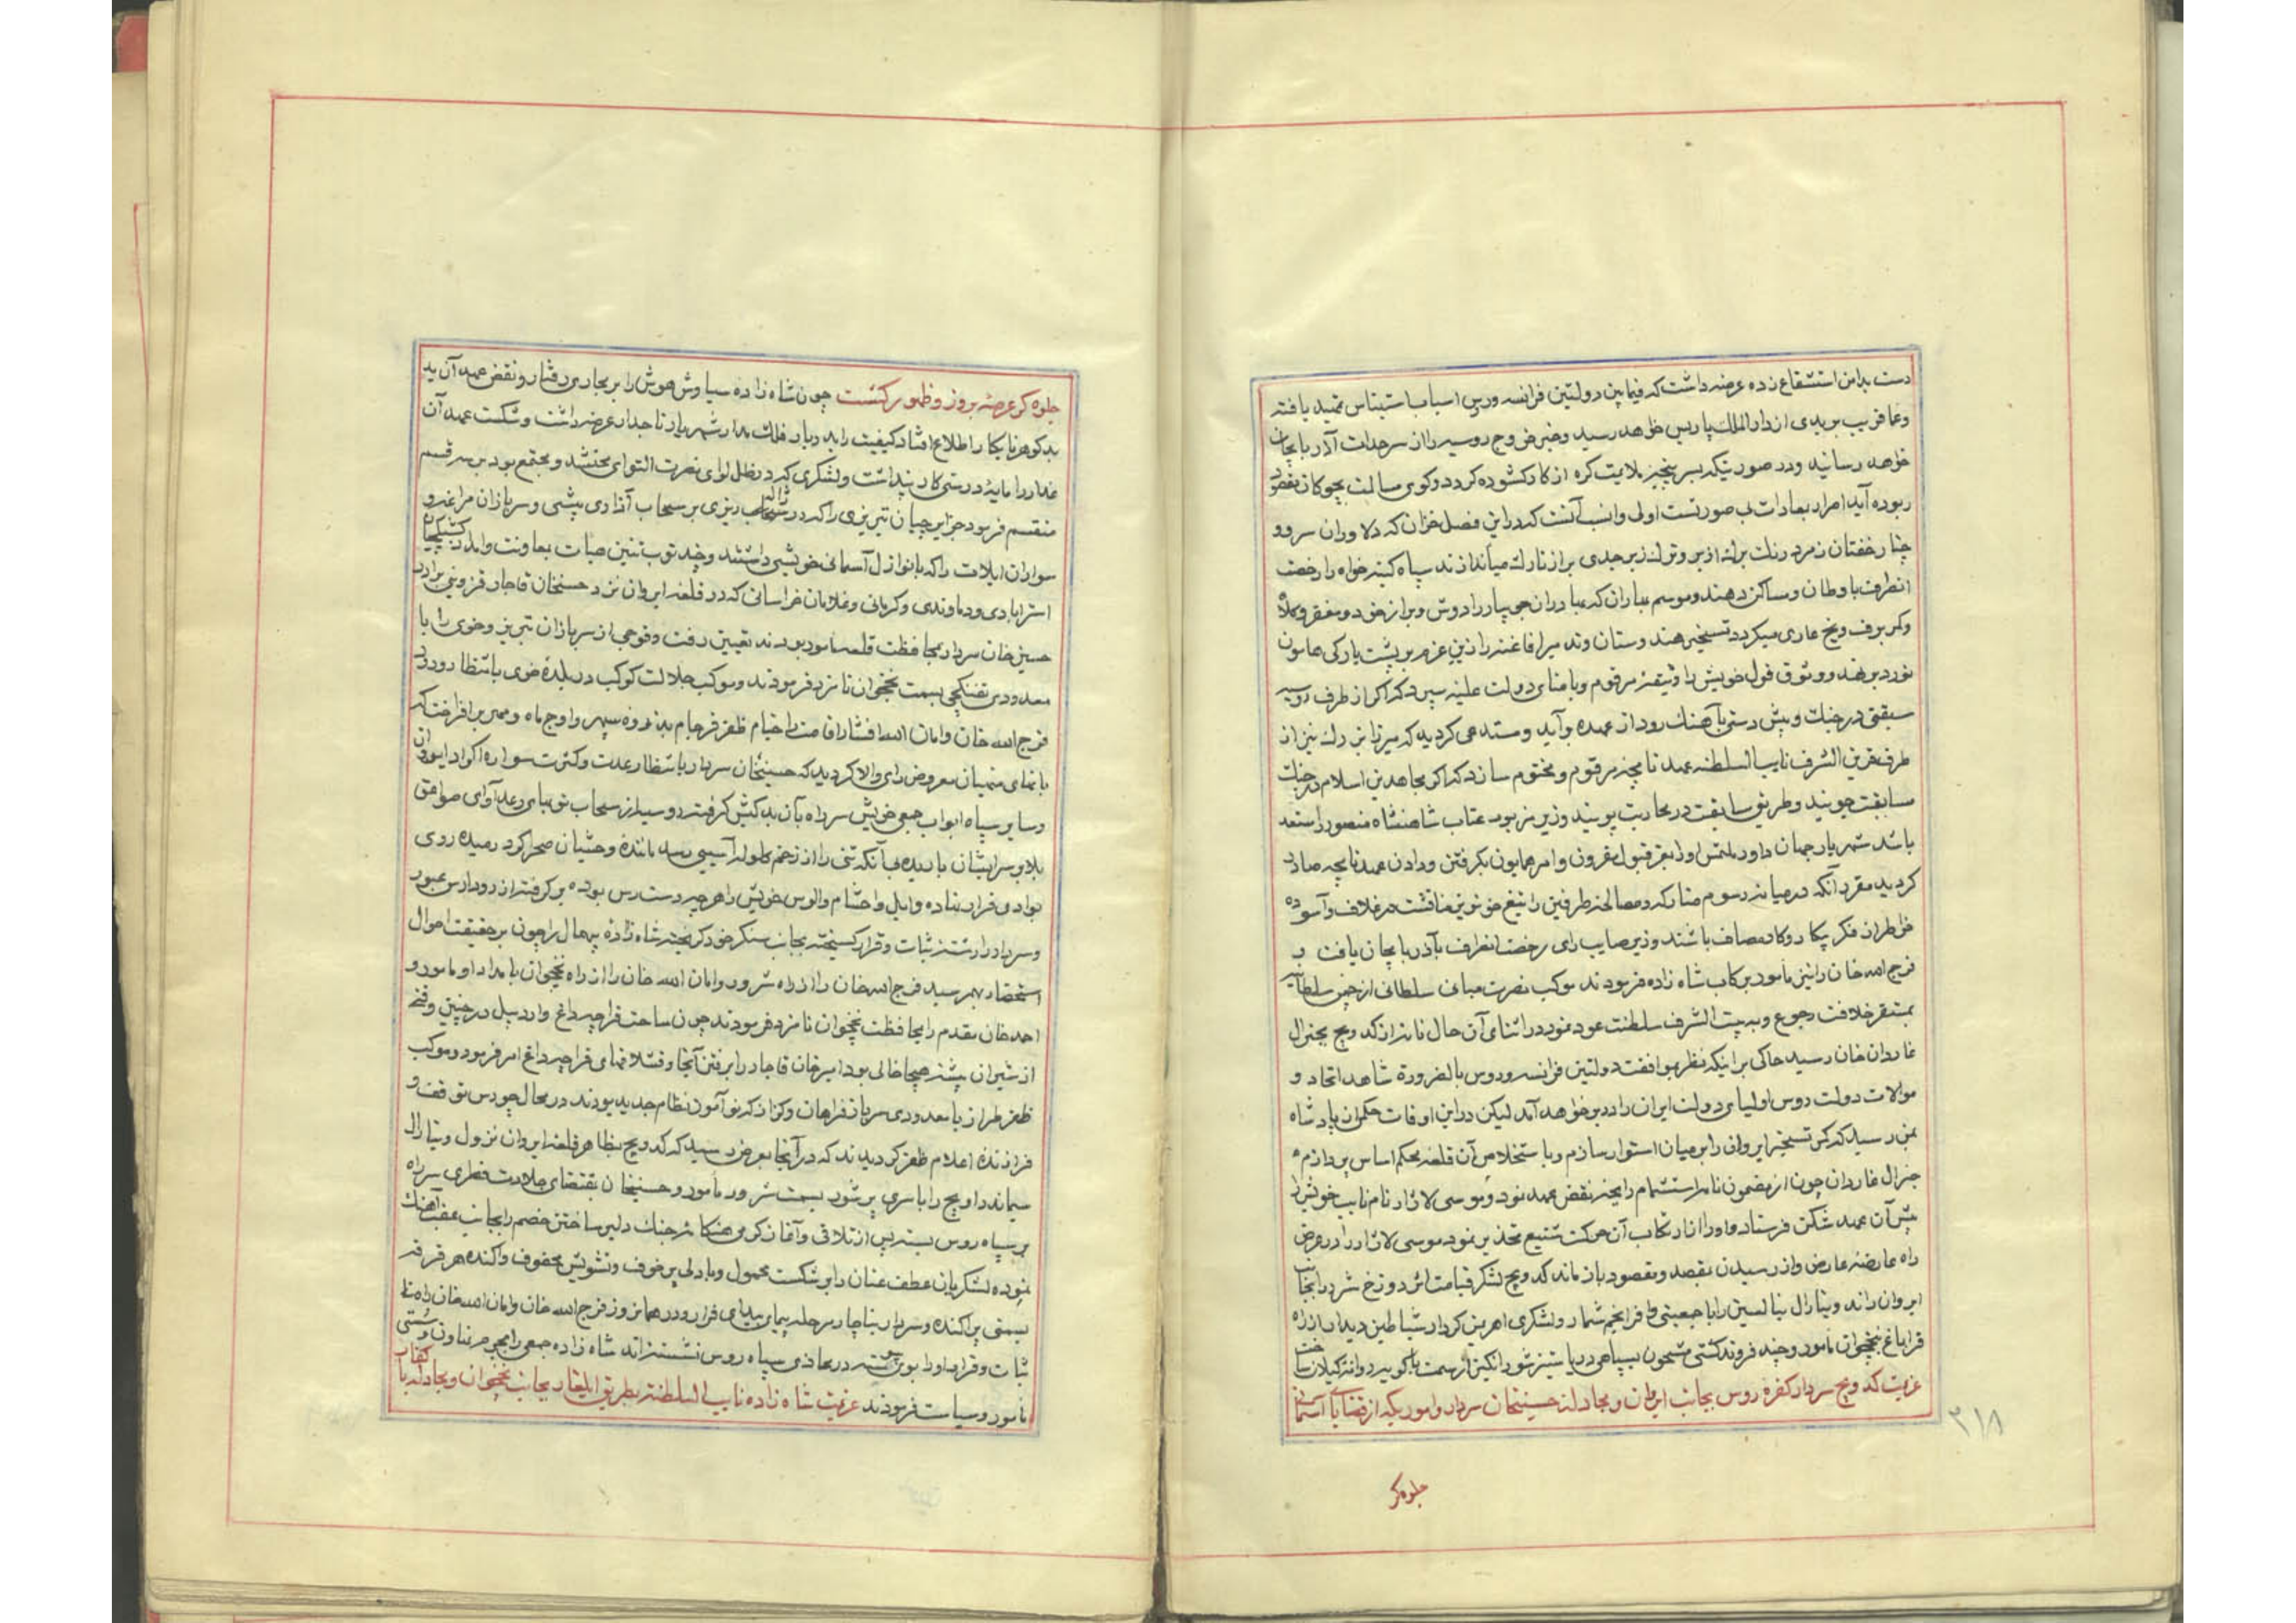 دست بدامن استشفاع زده عرضه داشت که فیمابین دولتین فرانسه وروس اسباب استیناس تمهید یافته
وعما قریب بریدی از دار الملک پاریس خواهد رسید وخبر خروج روسیه را از سرحدات آذربایجان
خواهد رسانید ودر صورتیکه بسرپنجه ملایمت کره از کار کشوده کردد وکوی مسالمت بچوکان
ربوده آید اصرار بمعادات بی صورتست اولی وانسب آنست که در این فصل خزان که دلاوران سرو و
چنار خفتان زمرد رنک برک از بر وترک زبرجدی بر از تارک میاندازند سپاه کینه خواه را رخصت
انصراف باوطان ومساکن دهند وموسم بهاران که مبادران جویبار را دوش وبر از خود ومغفر وکلاه
وکمر برف ویخ عاری میکردد تسخیر هندوستان وند میرافاغنه را زین عزم بر پشت بارکی هامون
نورد بر نهند ووثوق قول خویش را وثیقه مرقوم وبامنای دولت علیه سپرد که اکر از طرف روسیه
سبقتی در جنک وپیش دستی بآهنک رود از عهده برآید ومستدعی کردید که میرزا بزرک نیز از
طرف قرین الشرف نایب السلطنه عهدنامچه مرقوم ومختوم سازد که اکر مجاهدین اسلام در جنک
مسابقت جویند وطریق سابقت در محاربت پویند وزیر مزبور عتاب شاهنشاه منصور را مستعد
باشد شهریار جهان داور ملتمس او را بعز قبول مقرون وامر همایون بکرفتن ودادن عهدنامچه صادر
کردید مقرر آنکه در میانه رسوم متارکه ومصالحه طرفین را تیغ خونریز مناقشت در غلاف وآسوده
خاطر از فکر پیکار وکار مصاف باشند وزیر صایب رای رخصت انصراف بآذربایجان یافت و
فرج الله خان را نیز مامور برکاب شاه زاده فرمودند موکب نصرت مبانی سلطانی از چمن سلطانیه
بمستقر خلافت رجوع وببیت الشرف سلطنت عود نمود در اثنای آن حال نامه از کدویچ بجنرال
غاردان خان رسید حاکی بر اینکه نظر بموافقت دولتین فرانسه وروس بالضرورة شاهد اتحاد و
موالات دولت روس اولیای دولت ایران را در بر خواهد آمد لیکن در این اوقات حکم از پادشاه
بمن رسید که کمر تسخیر ایروان را بر میان استوار سازم وباستخلاص آن قلعه محکم اساس پردازم
جنرال غاردان چون از مضمون نامه استشمام رایحه نقض عهد نمود وموسی لاژار نام نایب خویش را
پیش آن عهد شکن فرستاد واو را از ارتکاب آن حرکت شنیع تحذیر نمود موسی لاژار را در عرض
راه عارضه عارض واز رسیدن بقصد ومقصود باز ماند کدویچ لشکر قیامت اثر دوزخ شرر را بجانب
ایروان راند وینارال نبالسین را با جمعیتی وافر انجم شمار ولشکری اهرمن کردار شیاطین دیدار از راه
قراباغ بنخجوان مامور وچند فروند کشتی مشحون بسپاهی دریا ستیز شورانکیز از سمت باکویه روانه کیلان ساخت
عزیمت کدویچ سردار کفره روس بجانب ایروان ومجادله حسینخان سردار واموریکه از قضایای آسمانی
جلوه کر
۲۱۸
جلوه کر عرصه بروز وظهور کشت چون شاه زاده سیاوش هوش را بر مجاری رفتار ونقض عهد آن بد
بدکوهر نابکار اطلاع افتاد کیفیت را بدربار فلک مدار شهریار تاجدار عرضه داشت وشکست عهد آن
غدار را مایه درستی کار پنداشت ولشکری که در ظل لوای نصرت التوای محتشد ومجتمع بود بر سه قسم
منقسم فرمود جزایرچیان تبریزی را که در ژاله ریزی بر سحاب آذاری پیشی وسربازان مراغه و
سواران ایلات را که با نوازل آسمانی خویشی داشتند وچند توپ تنین صلت بمعاونت وامداد کشیکچیان
استرابادی ودماوندی وکرمانی وغلامان خراسانی که در قلعه ایروان نزد حسنخان قاجار قزوینی برادر
حسین خان سردار بمحافظت قلعه مامور بودند تعیین رفت وفوجی از سربازان تبریز وخوی را با
معدودی تفنکچی بسمت نخجوان نامزد فرمودند وموکب جلالت کوکب در بلده خوی بانتظار ورود
فرج الله خان وامان الله افشار اقامت واخیام ظفر فرجام بذروه سپهر واوج ماه ومهر برافراخت که
بانهای منهیان معروض رای والا کردید که حسینخان سردار بانتظار عدت وکثرت سواره اکراد ایروان
وسایر سپاه ابواب جمعی خویش سر راه بآن بدکیش کرفته روسیه از سحاب توپهای رعد آوای صواعق
بلا بر سر ایشان باریده بی آنکه تنی را از زخم کلوله آسیبی رسد مانند وحشیان صحراکرد رمیده روی
بوادی فرار نهاده وایل واحشام والوس خویش را هر چه دست رس بوده بر کرفته از رود ارس عبور
وسردار را رشته ثبات وقرار کسیخته بجانب سنکر خود کریخته شاه زاده بیهمال را چون بر حقیقت احوال
استحضار بهم رسید فرج الله خان را از راه شرور وامان الله خان را از راه نخجوان بامداد او مامور و
احمد خان مقدم را بمحافظت نخجوان نامزد فرمودند چون ساحت قراجه داغ واردبیل در چنین وقتی
از شیران بیشه هیجا خالی بود امیرخان قاجار را برفتن آنجا وقشلاقهای قراجه داغ امر فرمود وموکب
ظفر طراز با معدودی سرباز فراهان وکزاز که نوآموز نظام جدید بودند در محال چورس توقف و
فرازنده اعلام ظفر کردیدند که در آنجا بعرض رسید که کدویچ بظاهر قلعه ایروان نزول وینارال
سیماند داویچ را با سری پر شور بسمت شرور مامور وحسینخان بمقتضای جلادت فطری سر راه
بر سپاه روس بسته پس از تلاقی وآغاز کرمی هنکامه جنک دلیر ساختن خصم را بجانب عقب آهنک
نموده لشکریان عطف عنان را بر شکست محمول وبا دلی پر خوف وتشویش محفوف واکنده هر فرقه
بسمتی پراکنده وسردار بناچار مرحله پیمای بیدای فرار ودر همان روز فرج الله خان وامان الله خان
ثبات وقرار در محاذی سپاه روس نشسته اند شاه زاده جمعی را بجرم تهاون وسستی
مامور وسیاست فرمودند عزیمت شاه زاده نایب السلطنه بطریق ایلغار بجانب نخجوان ومجادله با کفار